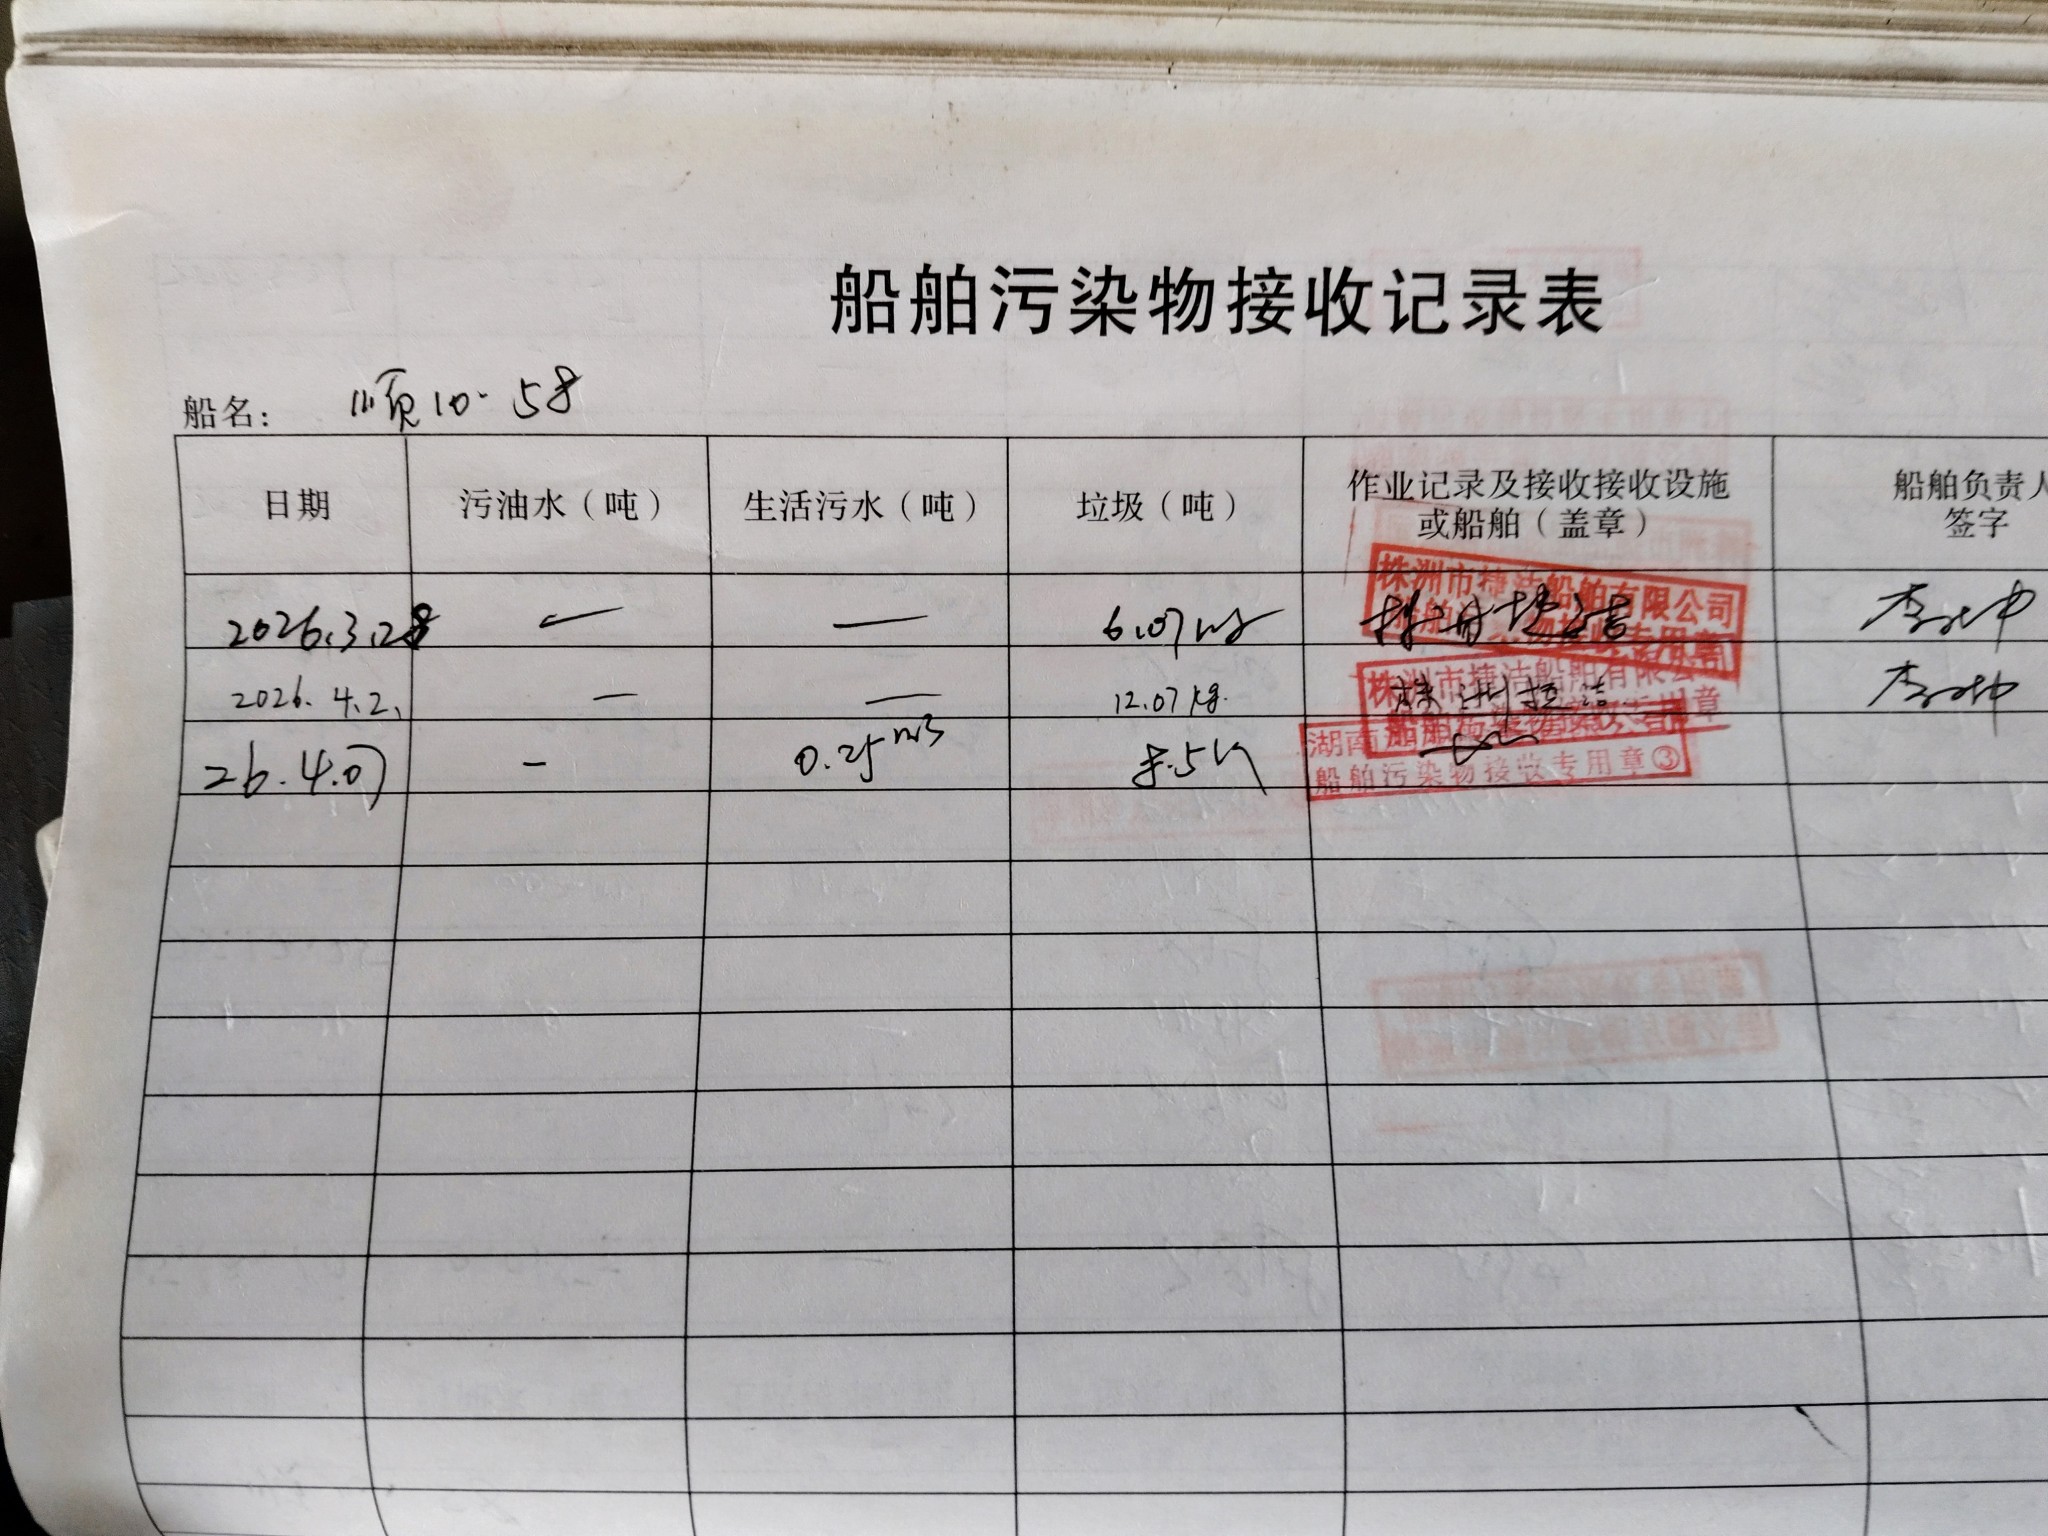 船舶污染物接收记录表
船名： 顺10-58
日期 污油水（吨） 生活污水（吨） 垃圾（吨） 作业记录及接收接收设施或船舶（盖章） 船舶负责人签字
2026.3.28 — — 6.07kg 株洲捷洁
株洲市捷洁船舶有限公司
2026.4.2. — — 12.07kg. 株洲捷洁
株洲市捷洁船舶有限公
26.4.07 - 0.25m3
湖南
船舶污染物接收专用章③